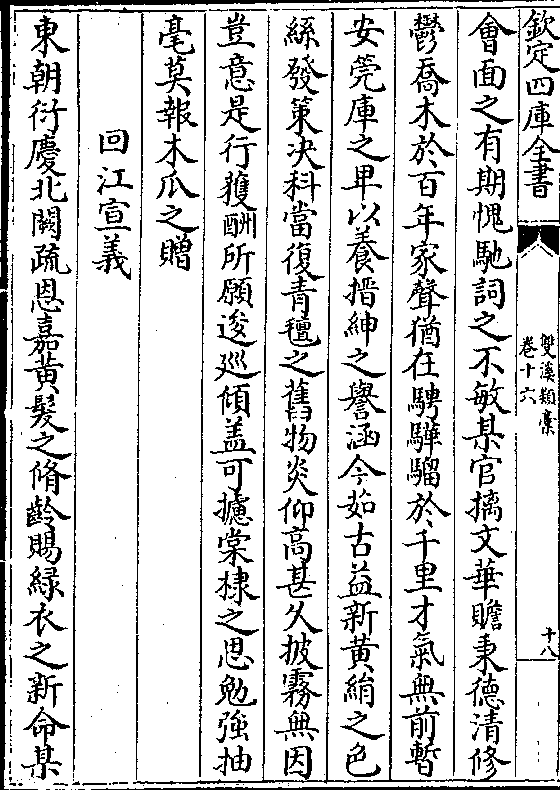 欽定四庫全書
雙溪類藁
卷十六
十八
會面之有期愧馳詞之不敏某官摛文華贍秉德清修
鬱喬木於百年家聲猶在騁驊騮於千里才氣無前暫
安筦庫之卑以養搢紳之譽涵今茹古益新黄絹之色
絲發策决科當復青氊之舊物炎仰高甚久披霧無因
豈意是行獲酬所願逡廵傾盖可攄棠棣之思勉強抽
毫莫報木瓜之贈
回江宣義
東朝衍慶北闕疏恩嘉黄髮之脩齡賜緑衣之新命某